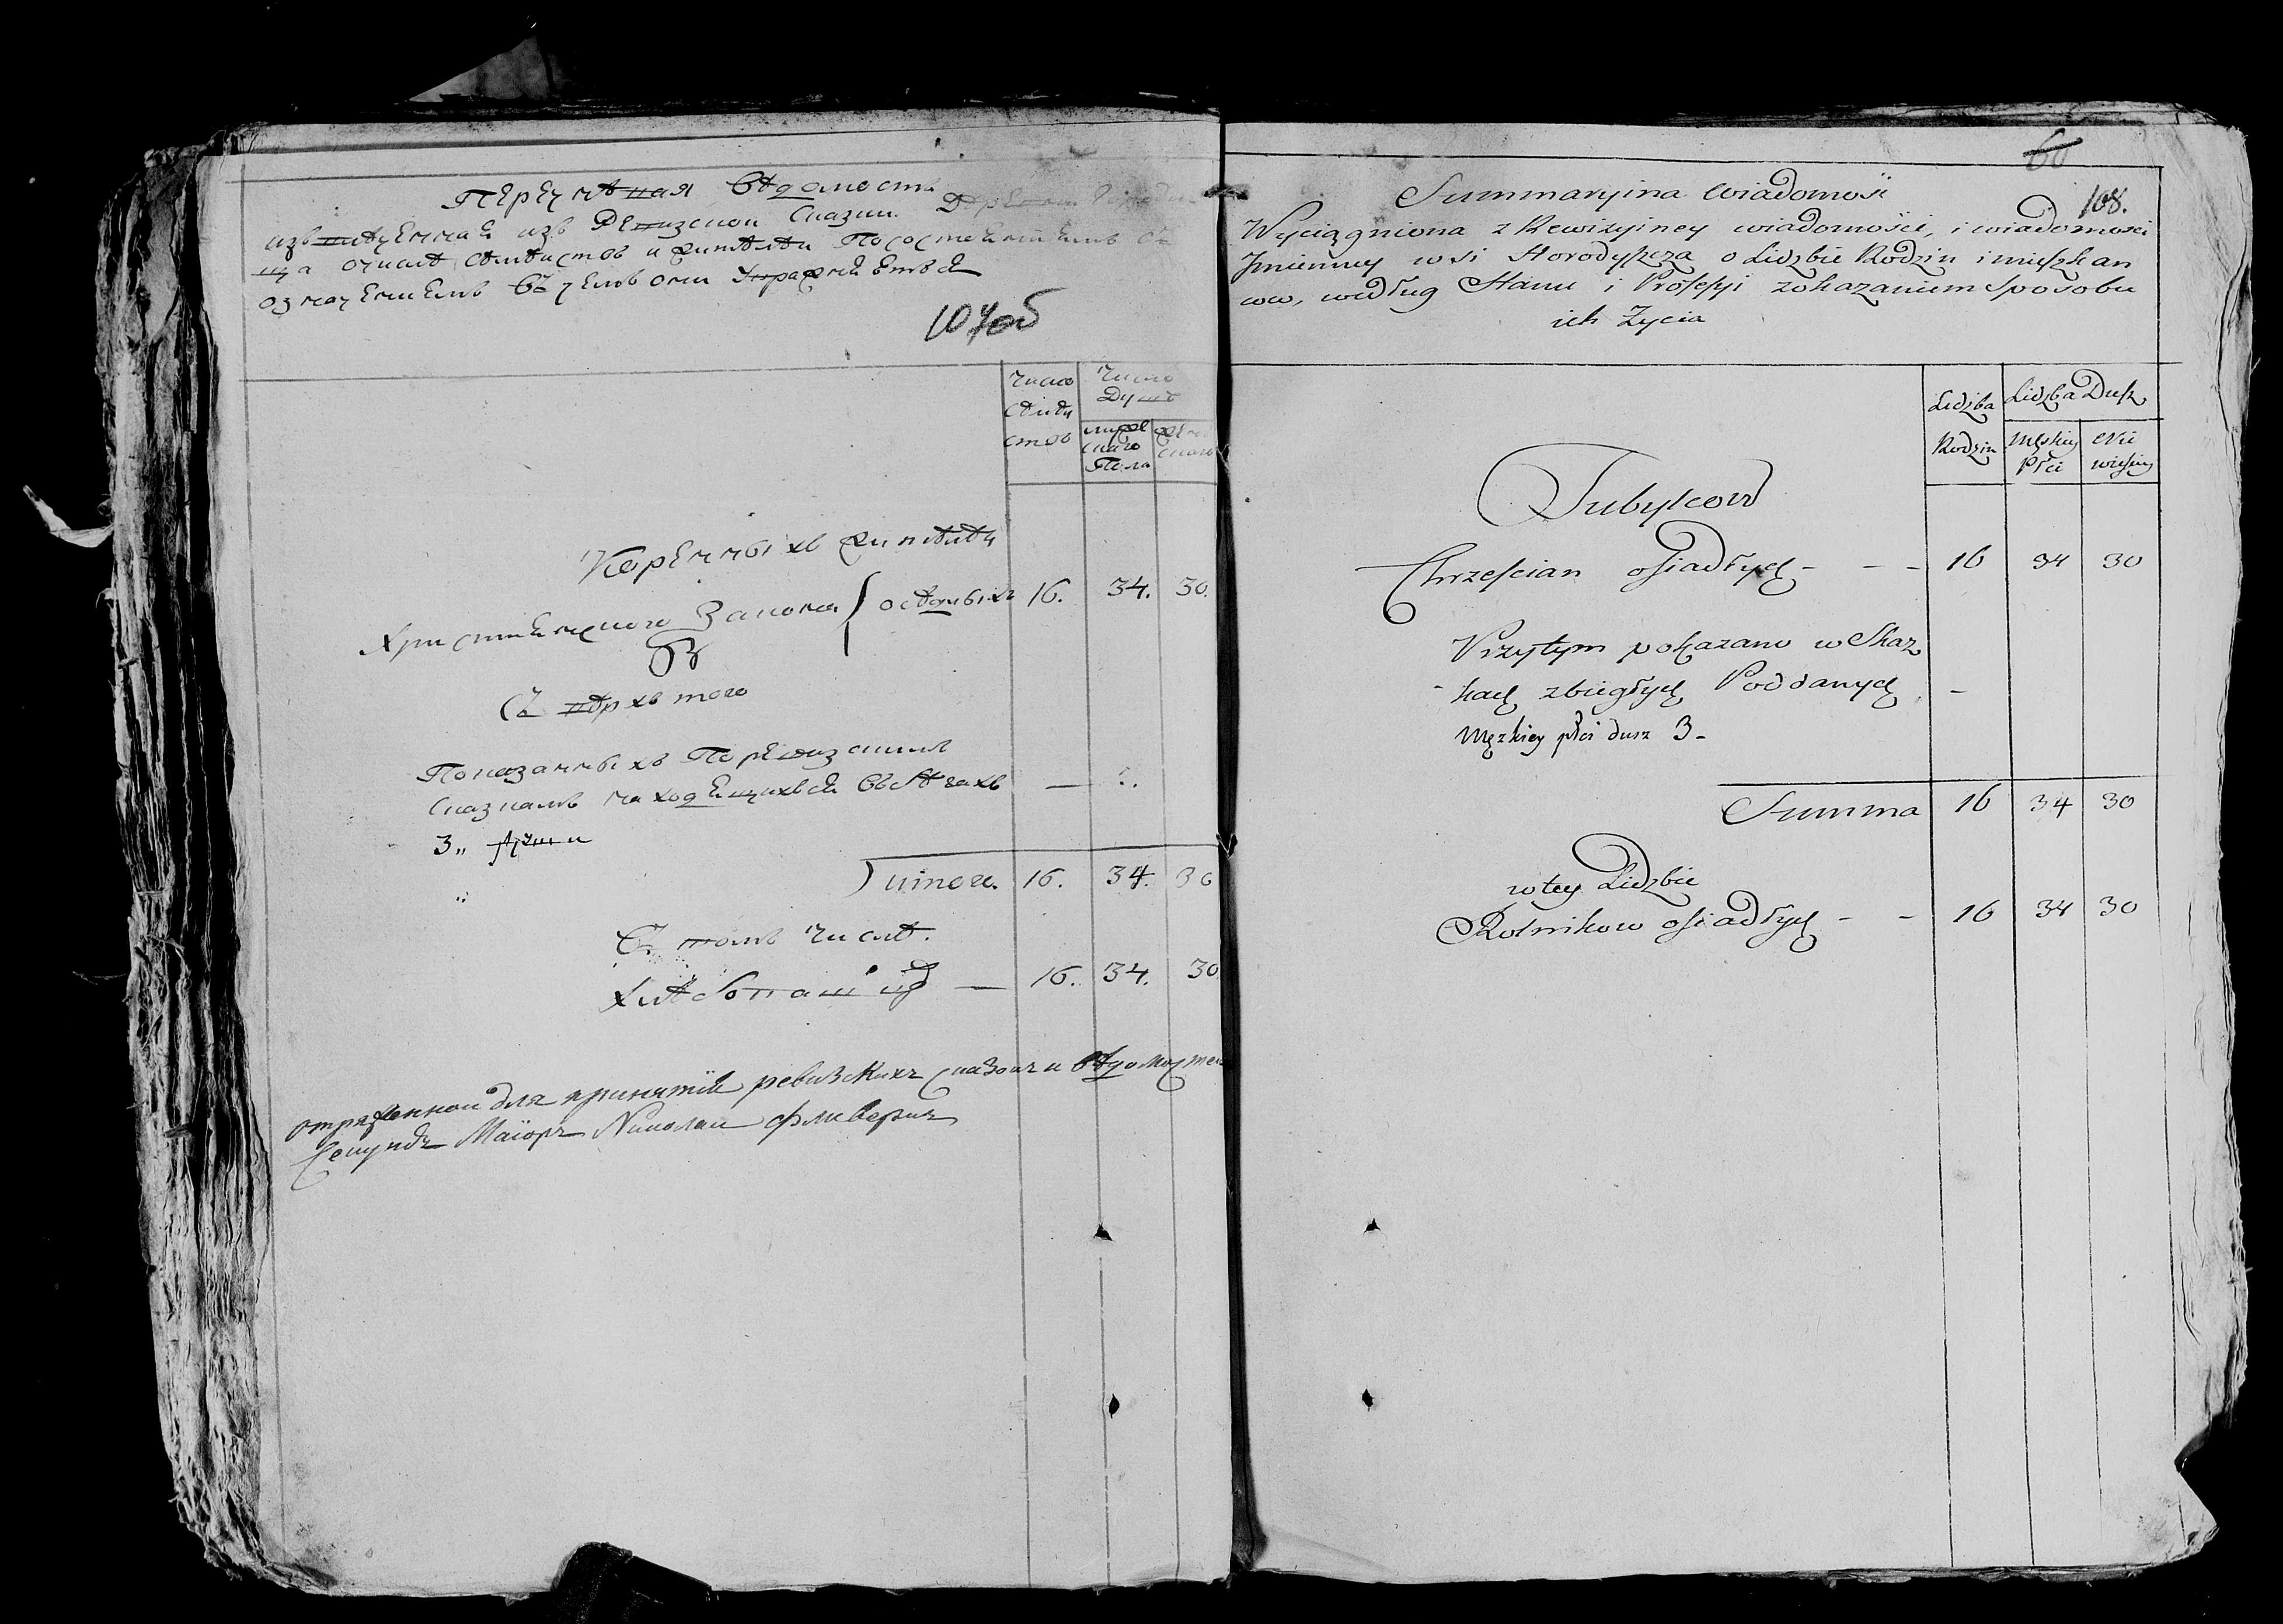 Перечневая Ведомость
извлеченная изъ Ревизской Сказки Деревни Городи
ща очисле семействъ и жителей Посостояніямъ съ
означеніемъ Въ чемъ они Упражняются
107об
Число
семей
ствъ
Число
Душъ
мужес
скаго
Пола
женс
скаго
Коренныхъ жителей
Христіянского Закона оседлыхъ 16. 34. 30.
Сверхъ того
Показанныхъ Поревизскимъ
Сказкамъ находящихся Вбегахъ —
3„ души
итого. 16. 34. 30
Въ томъ числе.
Хлебопашцовъ — 16. 34. 30
отряженной для принятія ревизскихъ сказокъ и ведомостей
Секундъ Маіоръ Николай
60
108.
Summaryina Wiadomość
Wyciągniona z Rewizyiney wiadomości, i wiadomości
Jmienney wsi Horodyszcza o Lidzbie Rodzin i mieszkan
cow, według Stanu i Professyi zokazaniem Sposobu
ich Zycia
Lidzba
Rodzin
Lidzba Dusz
Męskiey
Płci
Nie
wieskiey
Tubylcow
Chrzescian osiadłych - - - 16 34 30
Przytym pokazano w Skaz
kach zbiegłych Poddanych -
Męzkiey płci dusz 3-
Summa 16 34 30
w tey Lidzbie
Rolnikow osiadłych - - 16 34 30